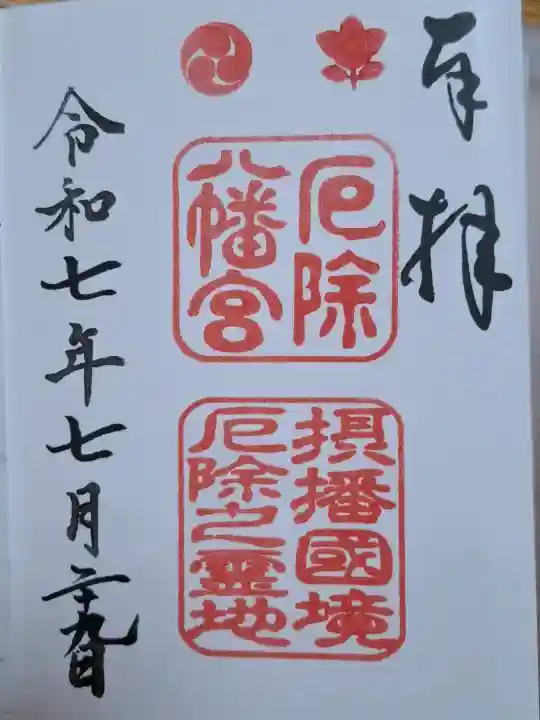 奉拝
厄除
八幡宮
摂播國境
厄除之霊地
令和七年七月二十九日